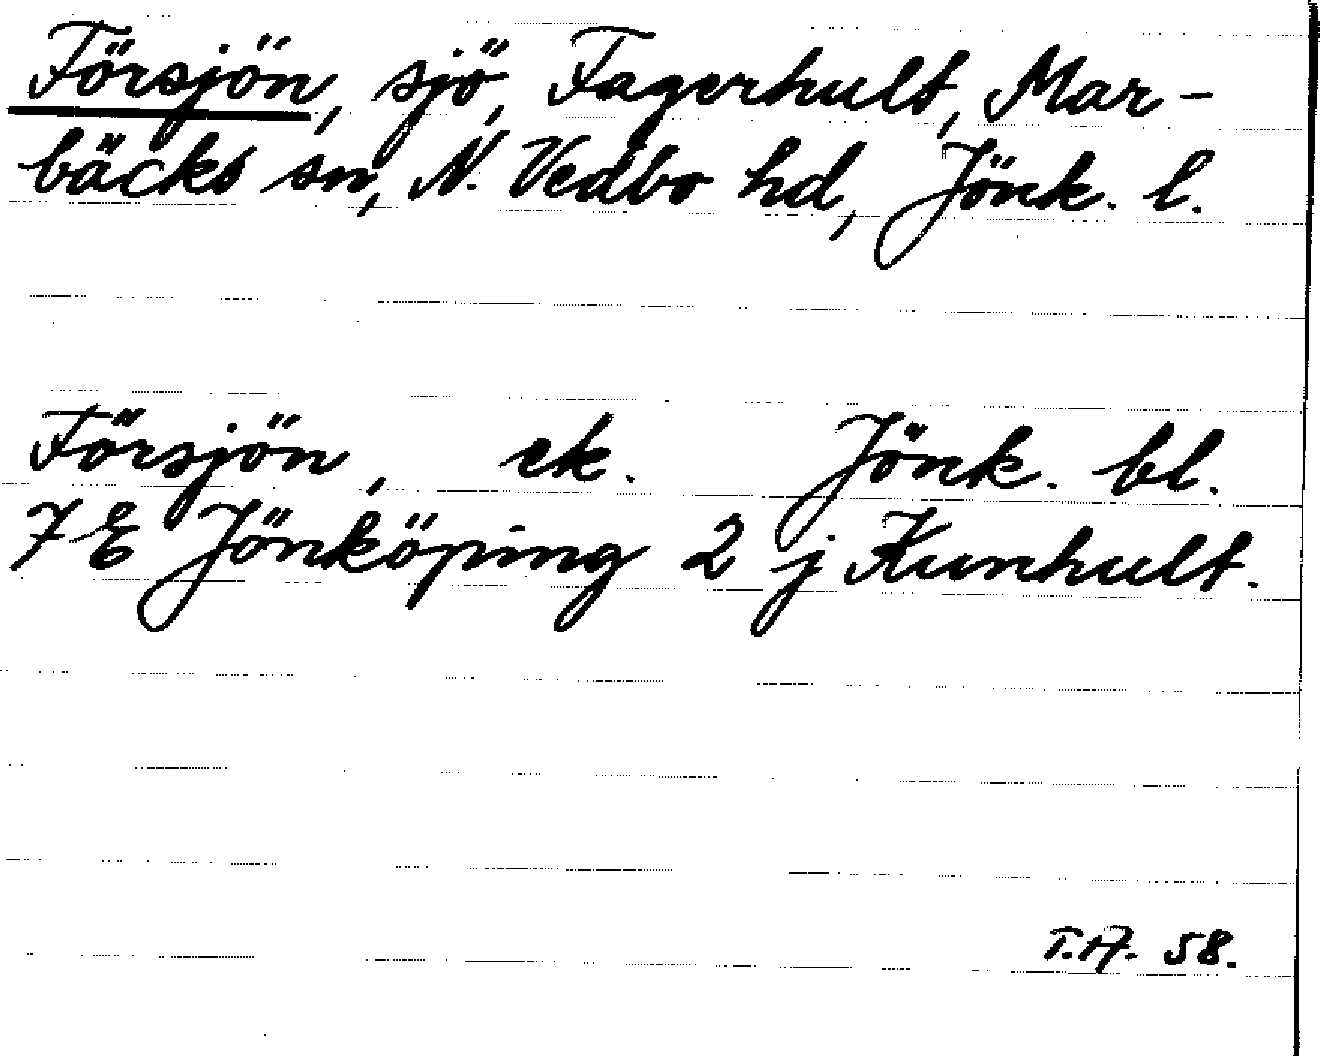 Försjön, sjö, Fagerhult, Mar-
bäcks sn, N. Vedbo hd, Jönk. l.
Försjön, ek. Jönk. bl.
7 E Jönköping 2 j Kunhult.
T.A. 58.